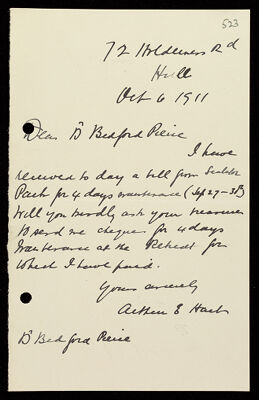 523
72 Holderness Rd
Hull
Oct 6 1911
Dear Dr Bedford Pierce
I have
received to day a bill from Scalebor
Park for 4 days maintenance (Sep 27-30)
Will you kindly ask your treasurer
to send me cheque for 4 days
maintenance at the Retreat for
which I have paid.
Yours sincerely
Arthur E Hart
Dr Bedford Pierce